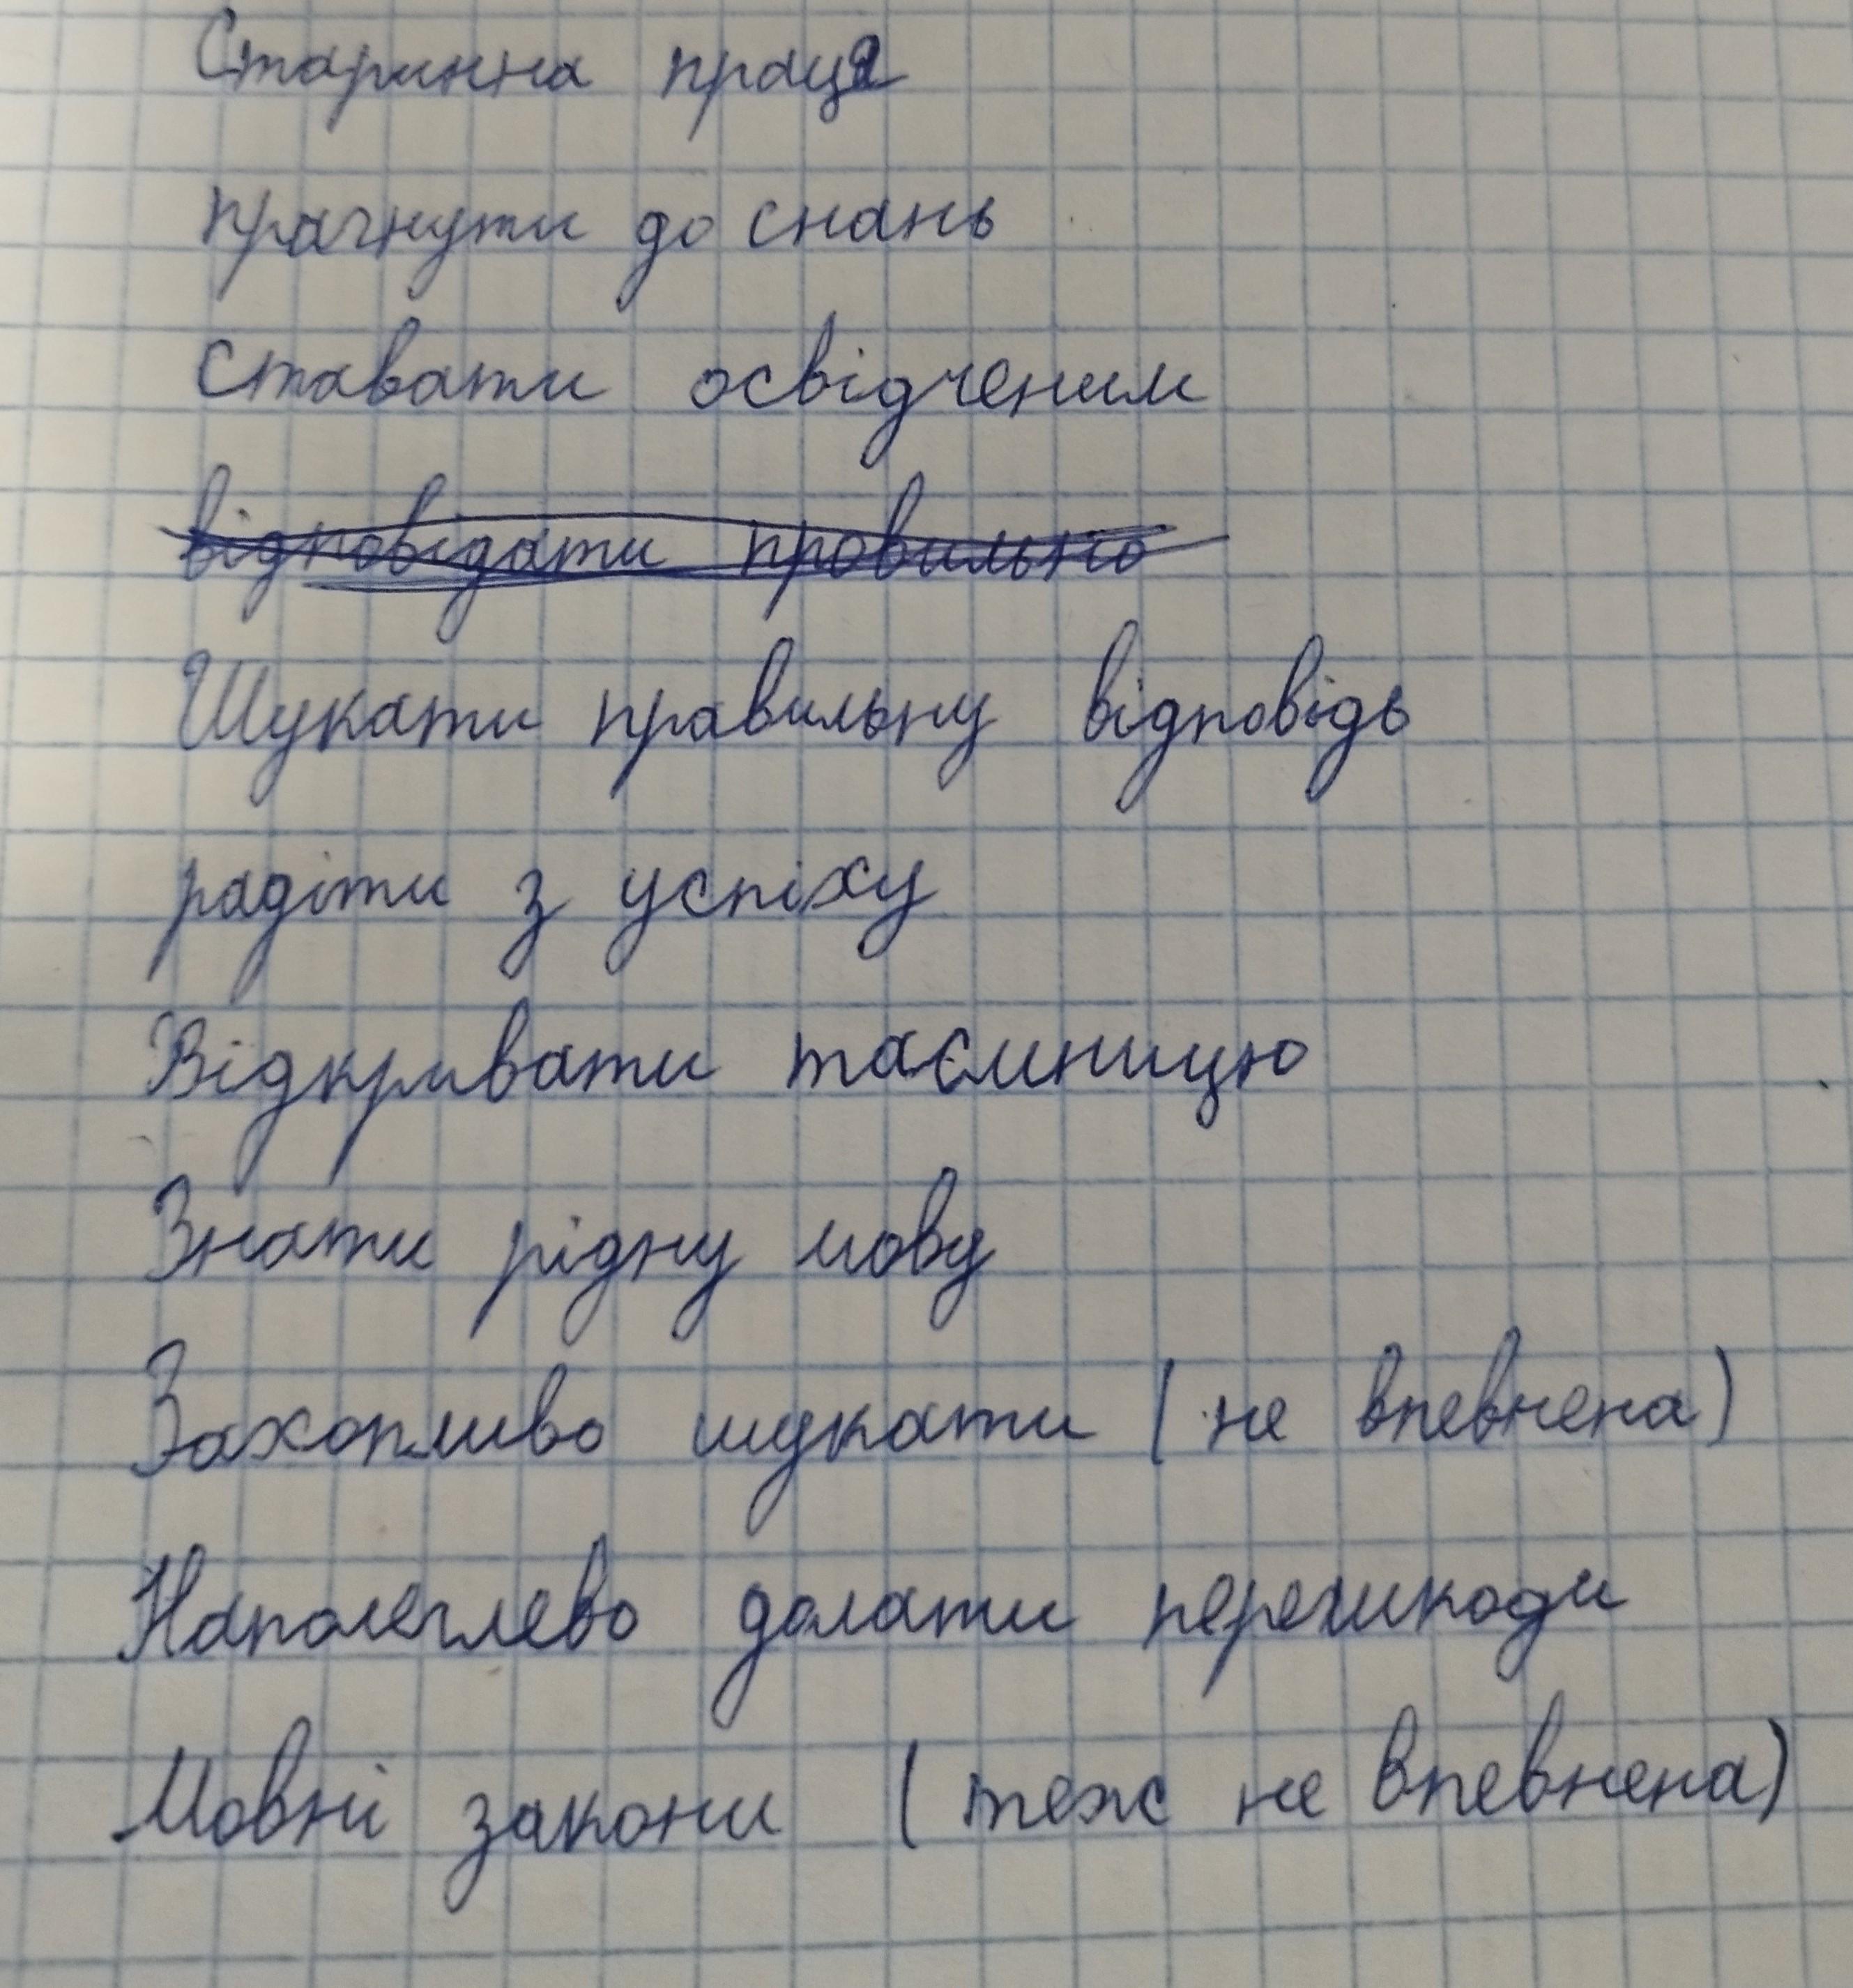 Старинна праця
прагнути до снань
ставати освідченим
відповідати провильно
Шукати правильну відповідь
радіти з успіху
Відкривати таємницю
Знати рідну мову
Захопливо шукати (не впевнена)
Наполеглево долати перешкоди
Мовні закони (теж не впевнена)